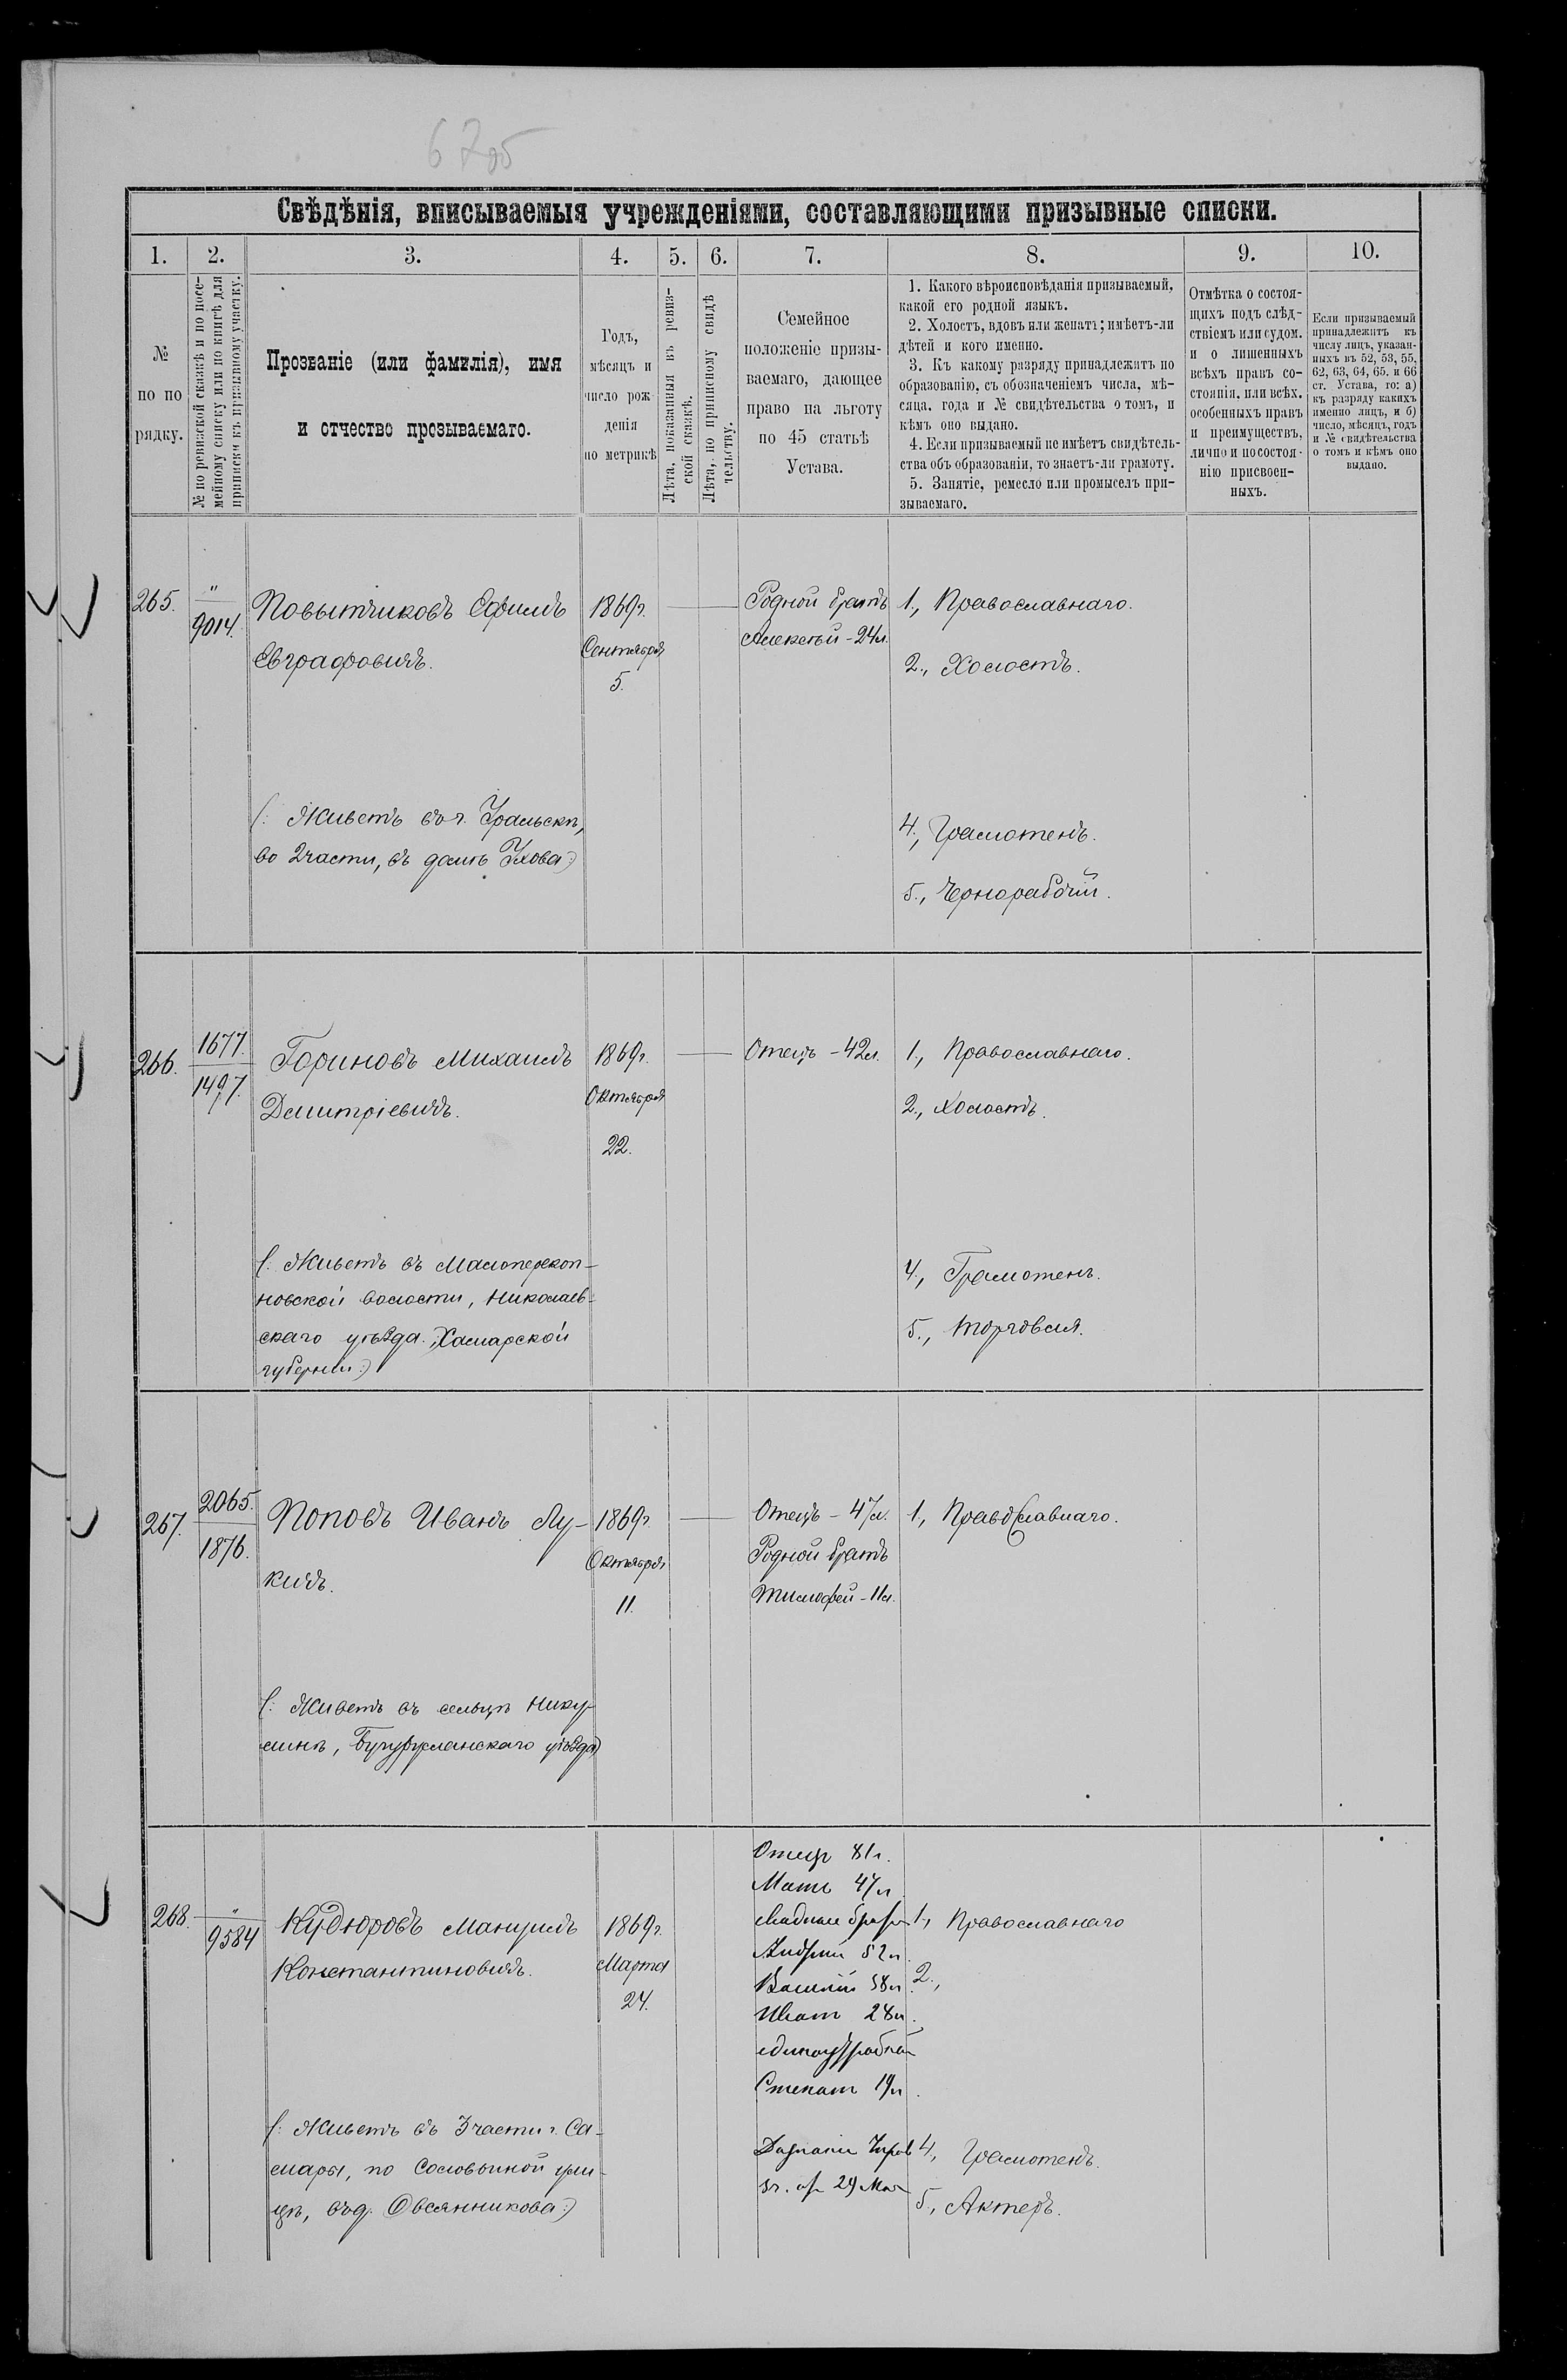 6705
Свѣдѣнія, вписываемыя учрежденіями, составляющими призывные списки.
1. 2. 3. 4. 5. 6. 7. 8. 9. 10.
№
по по
рядку.
№ по ревизской сказкѣ и по посе-
мейному списку или по книгѣ для
приписки къ призывному участку.
Прозваніе (или фамилія), имя
и отчество прозываемаго.
Годъ,
мѣсяцъ и
число рож
денія
по метрикѣ
Лѣта, показанныя въ ревиз-
ской сказкѣ.
Лѣта, по приписному свидѣ
тельству.
Семейное
положеніе призы-
ваемаго, дающее
право на льготу
по 45 статьѣ
Устава.
1. Какого вѣроисповѣданія призываемый,
какой его родной языкъ.
2. Холостъ, вдовъ или женатъ; имѣетъ-ли
дѣтей и кого именно.
3. Къ какому разряду принадлежитъ по
образованію, съ обозначеніемъ числа, мѣ-
сяца, года и № свидѣтельства о томъ, и
кѣмъ оно выдано.
4. Если призываемый не имѣетъ свидѣтель-
ства объ образованіи, то знаетъ-ли грамоту.
5. Занятіе, ремесло или промыселъ при-
зываемаго.
Отмѣтка о состоя-
щихъ подъ слѣд-
ствіемъ или судом.
и о лишенныхъ
всѣхъ правъ со-
стоянія, или всѣх.
особенныхъ правъ
и преимуществъ,
лично и по состоя-
нію присвоен-
ныхъ.
Если призываемый
принадлежитъ къ
числу лицъ, указан-
ныхъ въ 52, 53, 55,
62, 63, 64, 65. и 66
ст. Устава, то: а)
къ разряду какихъ
именно лицъ, и б)
число, мѣсяцъ, годъ
и № свидѣтельства
о томъ и кѣмъ оно
выдано.
265.
"
9014.
Повытчиковъ Ефимъ
Евграфовичъ.
1869 г.
Сентября
5.
Родной братъ
Алексѣй - 24 л.
1., Православнаго.
2., Холостъ.
(: Живетъ въ г. Уральскѣ,
во 2 части, въ домѣ Ухова :)
4., Грамотенъ.
5., Чернорабочій.
266.
1677.
1497.
Гориновъ Михаилъ
Дмитріевичъ.
1869 г.
Октября
22.
Отецъ - 42 л.
1., Православнаго.
2., Холостъ.
(: Живетъ въ
новской волости, Николаев-
скаго уѣзда. Самарской
губерніи :)
4., Грамотенъ.
5., Торговля.
267.
2065.
1876.
Поповъ Иванъ Лу-
кичъ.
1869 г.
Октября
11.
Отецъ - 47 л.
Родной братъ
Тимофей - 11 л.
1., Православнаго.
(: Живетъ въ сельцѣ
Бугурусланскаго уѣзда :)
268.
"
9584
Кудюровъ
Константиновичъ.
1869 г.
Марта
24.
Отецъ 81 г.
Мать 47 л.
Андрей 52 л.
Василій 38 л.
Иванъ 28 л.
единоутробной
Степанъ 19 л.
1., Православнаго
2.,
(: Живетъ въ 3 части г. Са-
мары, по Соловьиной ули-
цѣ, въ д. Овсянникова :)
4., Грамотенъ.
5., Актеръ.